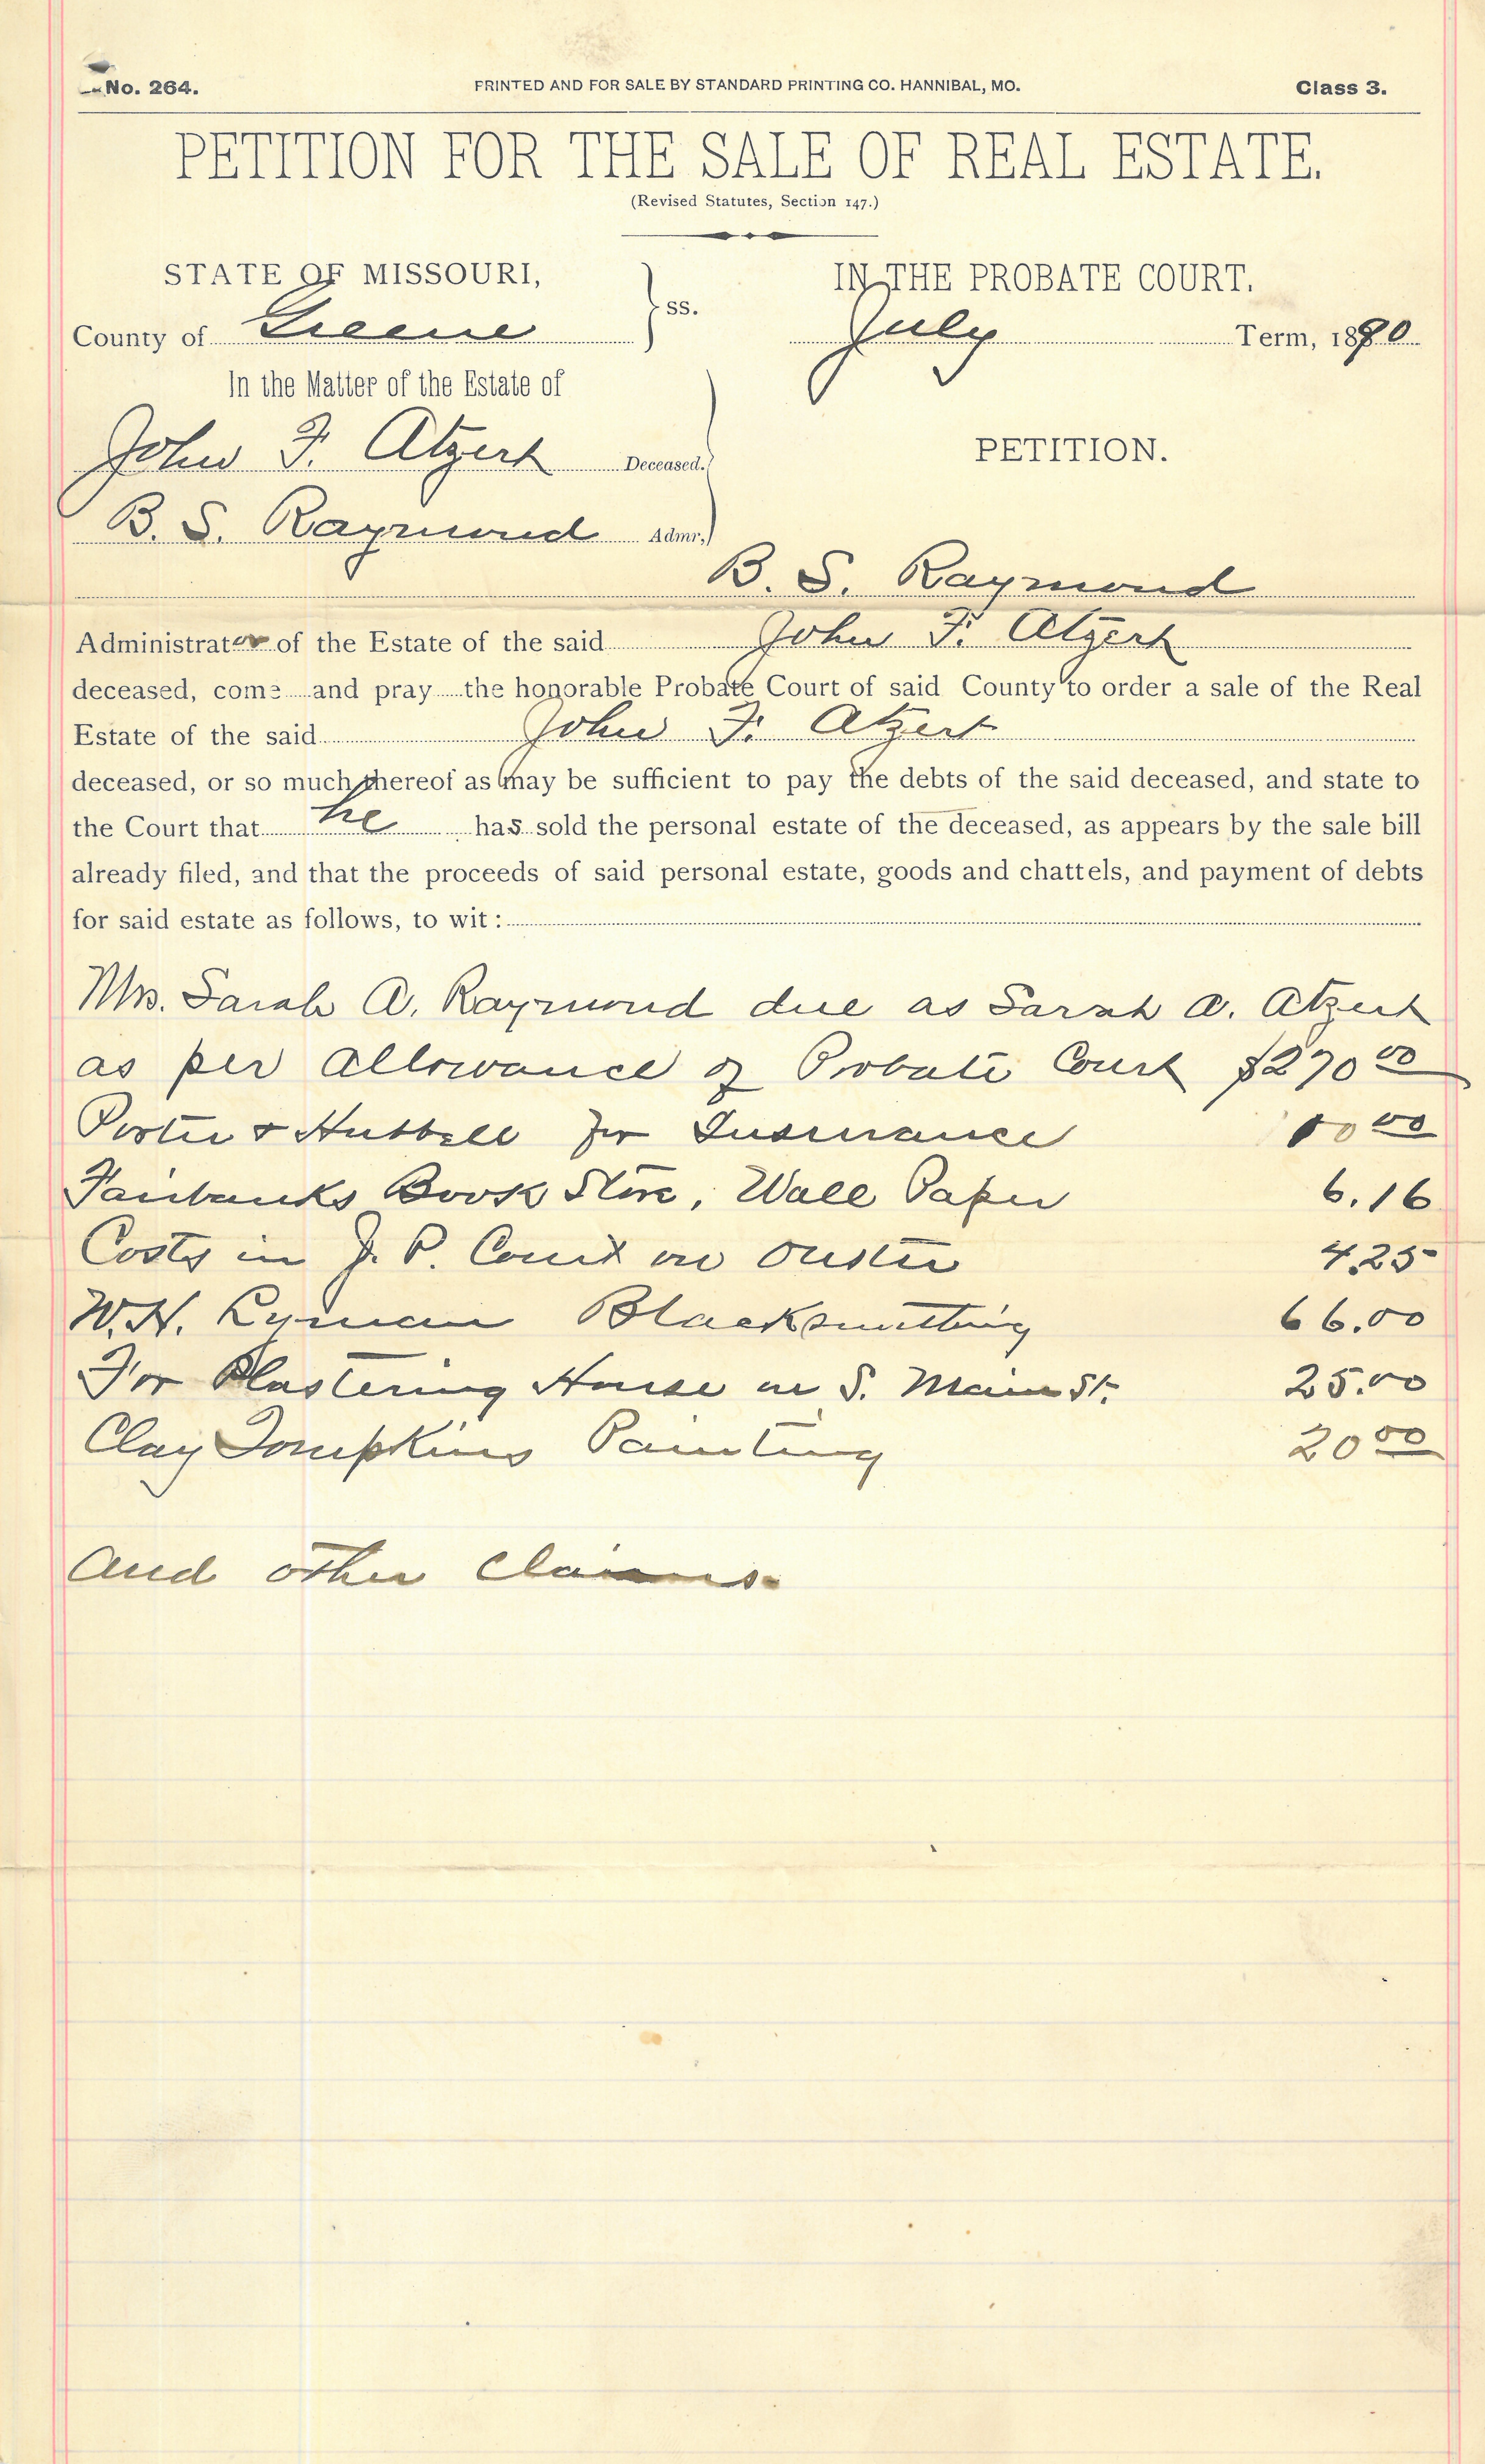 No. 264. PRINTED AND FOR SALE BY STANDARD PRINTING CO. HANNIBAL, MO. Class 3.
PETITION FOR THE SALE OF REAL ESTATE.
(Revised Statutes, Section 147.)
STATE OF MISSOURI, ss. IN THE PROBATE COURT.
County of Greene July Term, 1890
In the Matter of the Estate of
John F. Atzert Deceased. PETITION.
B. S. Raymond Admr,
B. S. Raymond
Administrator of the Estate of the said John F. Atzert
deceased, come and pray the honorable Probate Court of said County to order a sale of the Real
Estate of the said John F. Atzert
deceased, or so much thereof as may be sufficient to pay the debts of the said deceased, and state to
the Court that he has sold the personal estate of the deceased, as appears by the sale bill
already filed, and that the proceeds of said personal estate, goods and chattels, and payment of debts
for said estate as follows, to wit:
Mrs. Sarah A. Raymond due as Sarah A. Atzert
as per allowance of Probate Court $270 00
Porter & Hubbell for Insurance 10 00
Fairbanks Book Store, Wall Paper 6.16
Costs in J. P. Court on Ouster 4.25
W. H. Lyman Blacksmithing 66.00
For Plastering House on S. Main St. 25.00
Clay Tompkins Painting 20 00
and other claims.